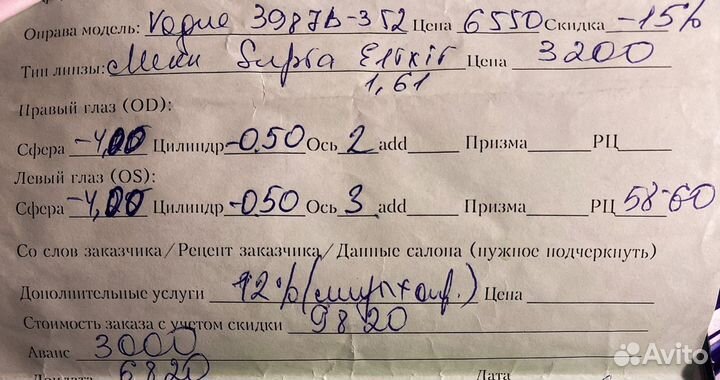 Оправа модель: Vogue 3987B-352 Цена 6550 Скидка -15%
Тип линзы: Supra Elixir Цена 3200
1,61
Правый глаз (OD):
Сфера -4,00 Цилиндр -0,50 Ось 2 add Призма РЦ
Левый глаз (OS):
Сфера -4,00 Цилиндр -0,50 Ось 3 add Призма РЦ 58-60
Со слов заказчика/Рецепт заказчика/Данные салона (нужное подчеркнуть)
Дополнительные услуги Цена
Стоимость заказа с учетом скидки 9820
Аванс 3000
Доплата 6820 Дата
Avito